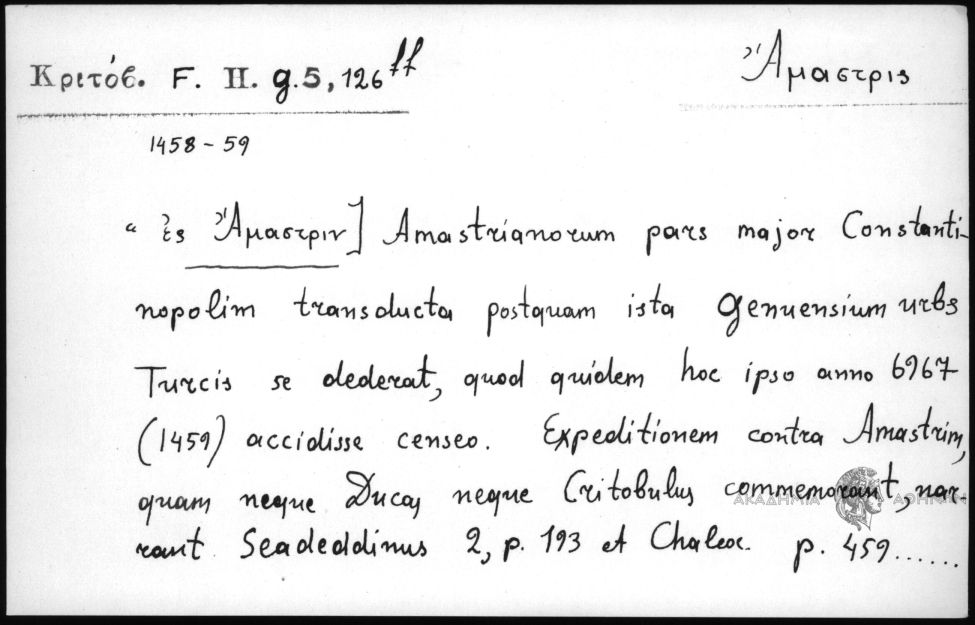 Κριτόβ. F. H. g.5, 126 ff
Ἄμαστρις
1458 - 59
“ ἐς Ἄμαστριν] Amastrianorum pars major Constanti-
nopolim transducta postquam ista Genuensium urbs
Turcis se dederat, quod quidem hoc ipso anno 6967
(1459) accidisse censeo. Expeditionem contra Amastrim,
quam neque Ducas neque Critobulus commemorant, nar-
rant Seadeddinus 2, p. 193 et Chalcoc. p. 459......
ΑΚΑΔΗΜΙΑ ΑΘΗΝΩΝ